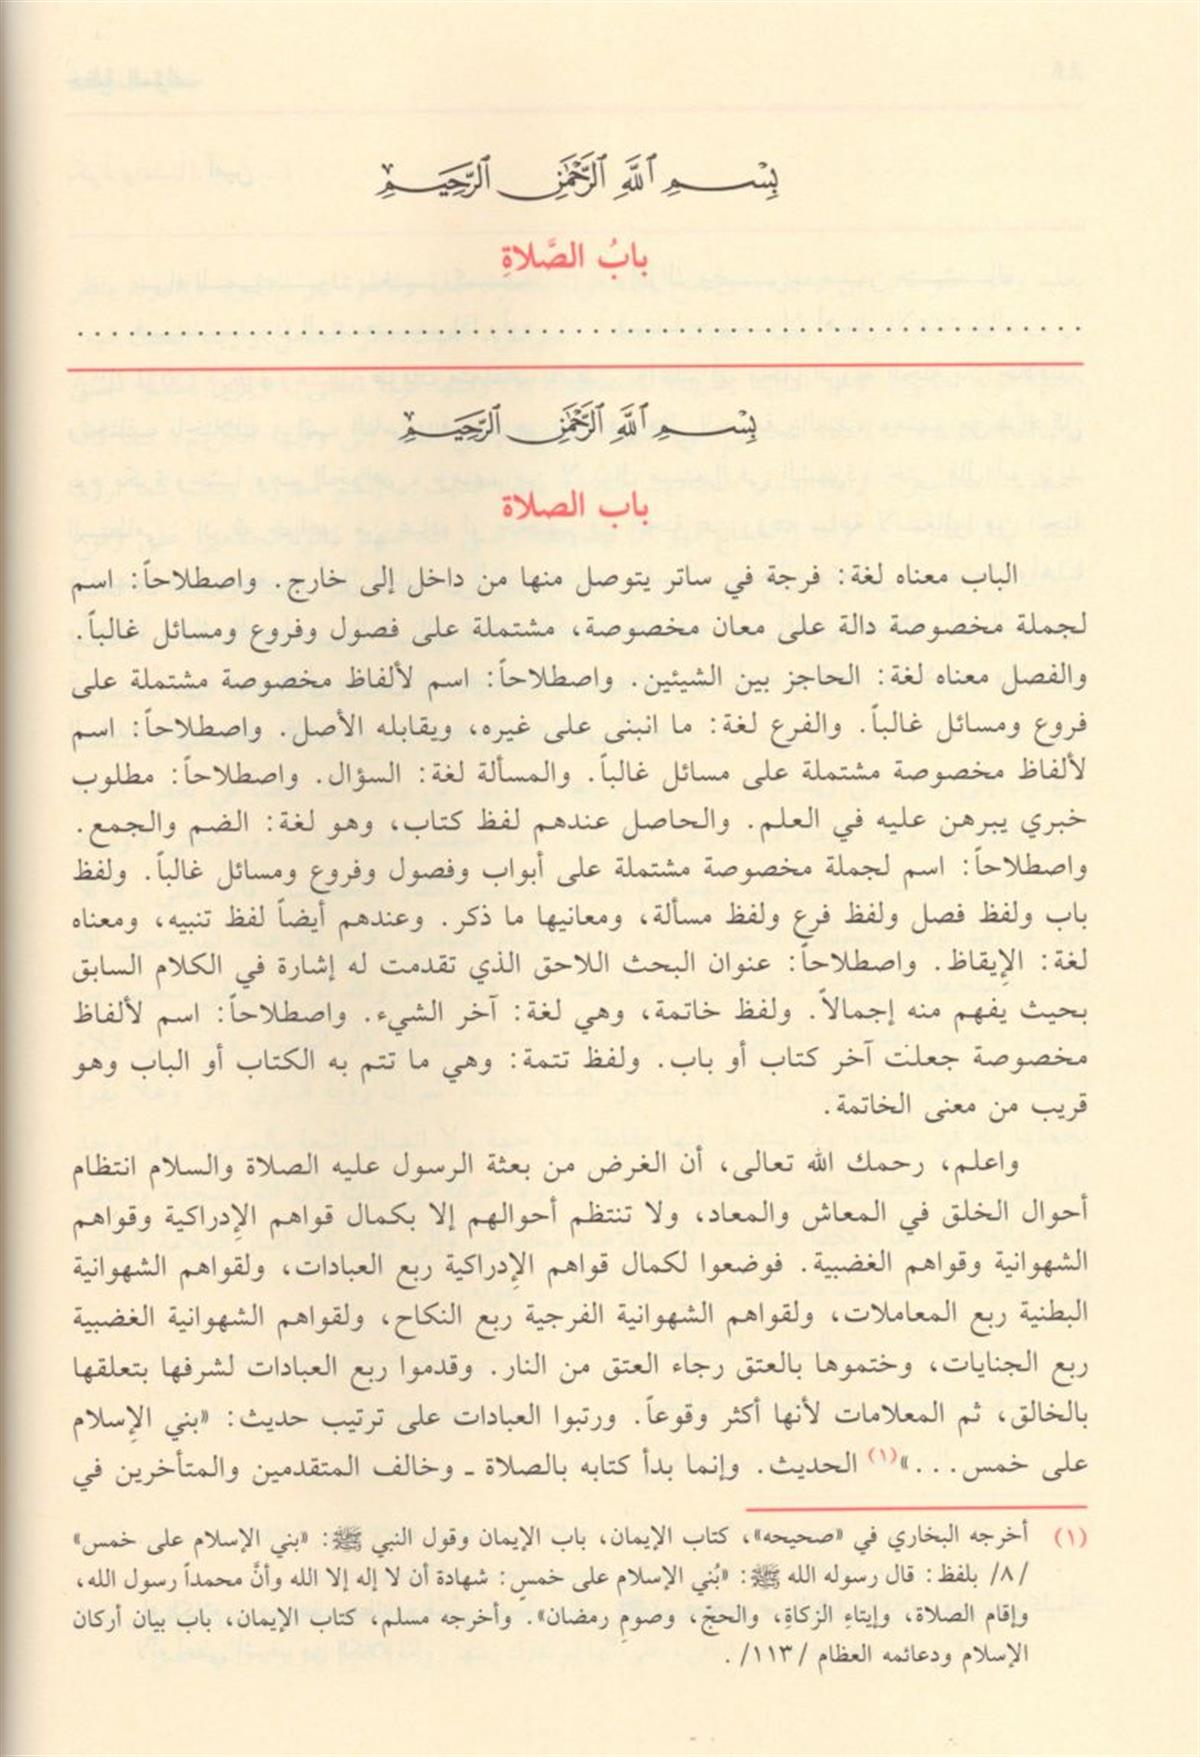 بِسْمِ ٱللَّهِ ٱلرَّحْمَٰنِ ٱلرَّحِيمِ
بابُ الصَّلاةِ
................................................................
بِسْمِ ٱللَّهِ ٱلرَّحْمَٰنِ ٱلرَّحِيمِ
باب الصلاة
الباب معناه لغة: فرجة في ساتر يتوصل منها من داخل إلى خارج. واصطلاحاً: اسم
لجملة مخصوصة دالة على معان مخصوصة، مشتملة على فصول وفروع ومسائل غالباً.
والفصل معناه لغة: الحاجز بين الشيئين. واصطلاحاً: اسم لألفاظ مخصوصة مشتملة على
فروع ومسائل غالباً. والفرع لغة: ما انبنى على غيره، ويقابله الأصل. واصطلاحاً: اسم
لألفاظ مخصوصة مشتملة على مسائل غالباً. والمسألة لغة: السؤال. واصطلاحاً: مطلوب
خبري يبرهن عليه في العلم. والحاصل عندهم لفظ كتاب، وهو لغة: الضم والجمع.
واصطلاحاً: اسم لجملة مخصوصة مشتملة على أبواب وفصول وفروع ومسائل غالباً. ولفظ
باب ولفظ فصل ولفظ فرع ولفظ مسألة، ومعانيها ما ذكر. وعندهم أيضاً لفظ تنبيه، ومعناه
لغة: الإِيقاظ. واصطلاحاً: عنوان البحث اللاحق الذي تقدمت له إشارة في الكلام السابق
بحيث يفهم منه إجمالاً. ولفظ خاتمة، وهي لغة: آخر الشيء. واصطلاحاً: اسم لألفاظ
مخصوصة جعلت آخر كتاب أو باب. ولفظ تتمة: وهي ما تتم به الكتاب أو الباب وهو
قريب من معنى الخاتمة.
واعلم، رحمك الله تعالى، أن الغرض من بعثة الرسول عليه الصلاة والسلام انتظام
أحوال الخلق في المعاش والمعاد، ولا تنتظم أحوالهم إلا بكمال قواهم الإِدراكية وقواهم
الشهوانية وقواهم الغضبية. فوضعوا لكمال قواهم الإِدراكية ربع العبادات، ولقواهم الشهوانية
البطنية ربع المعاملات، ولقواهم الشهوانية الفرجية ربع النكاح، ولقواهم الشهوانية الغضبية
ربع الجنايات، وختموها بالعتق رجاء العتق من النار. وقدموا ربع العبادات لشرفها بتعلقها
بالخالق، ثم المعلامات لأنها أكثر وقوعاً. ورتبوا العبادات على ترتيب حديث: «بني الإِسلام
على خمس...»(١) الحديث. وإنما بدأ كتابه بالصلاة ـ وخالف المتقدمين والمتأخرين في
(١) أخرجه البخاري في «صحيحه»، كتاب الإيمان، باب الإيمان وقول النبي ﷺ: «بني الإسلام على خمس»
/٨/ بلفظ: قال رسوله الله ﷺ: «بُني الإسلام على خمسٍ: شهادة أن لا إله إلا الله وأنَّ محمداً رسول الله،
وإقام الصلاة، وإيتاءِ الزكاةِ، والحجّ، وصومِ رمضان». وأخرجه مسلم، كتاب الإيمان، باب بيان أركان
الإسلام ودعائمه العظام /١١٣/.